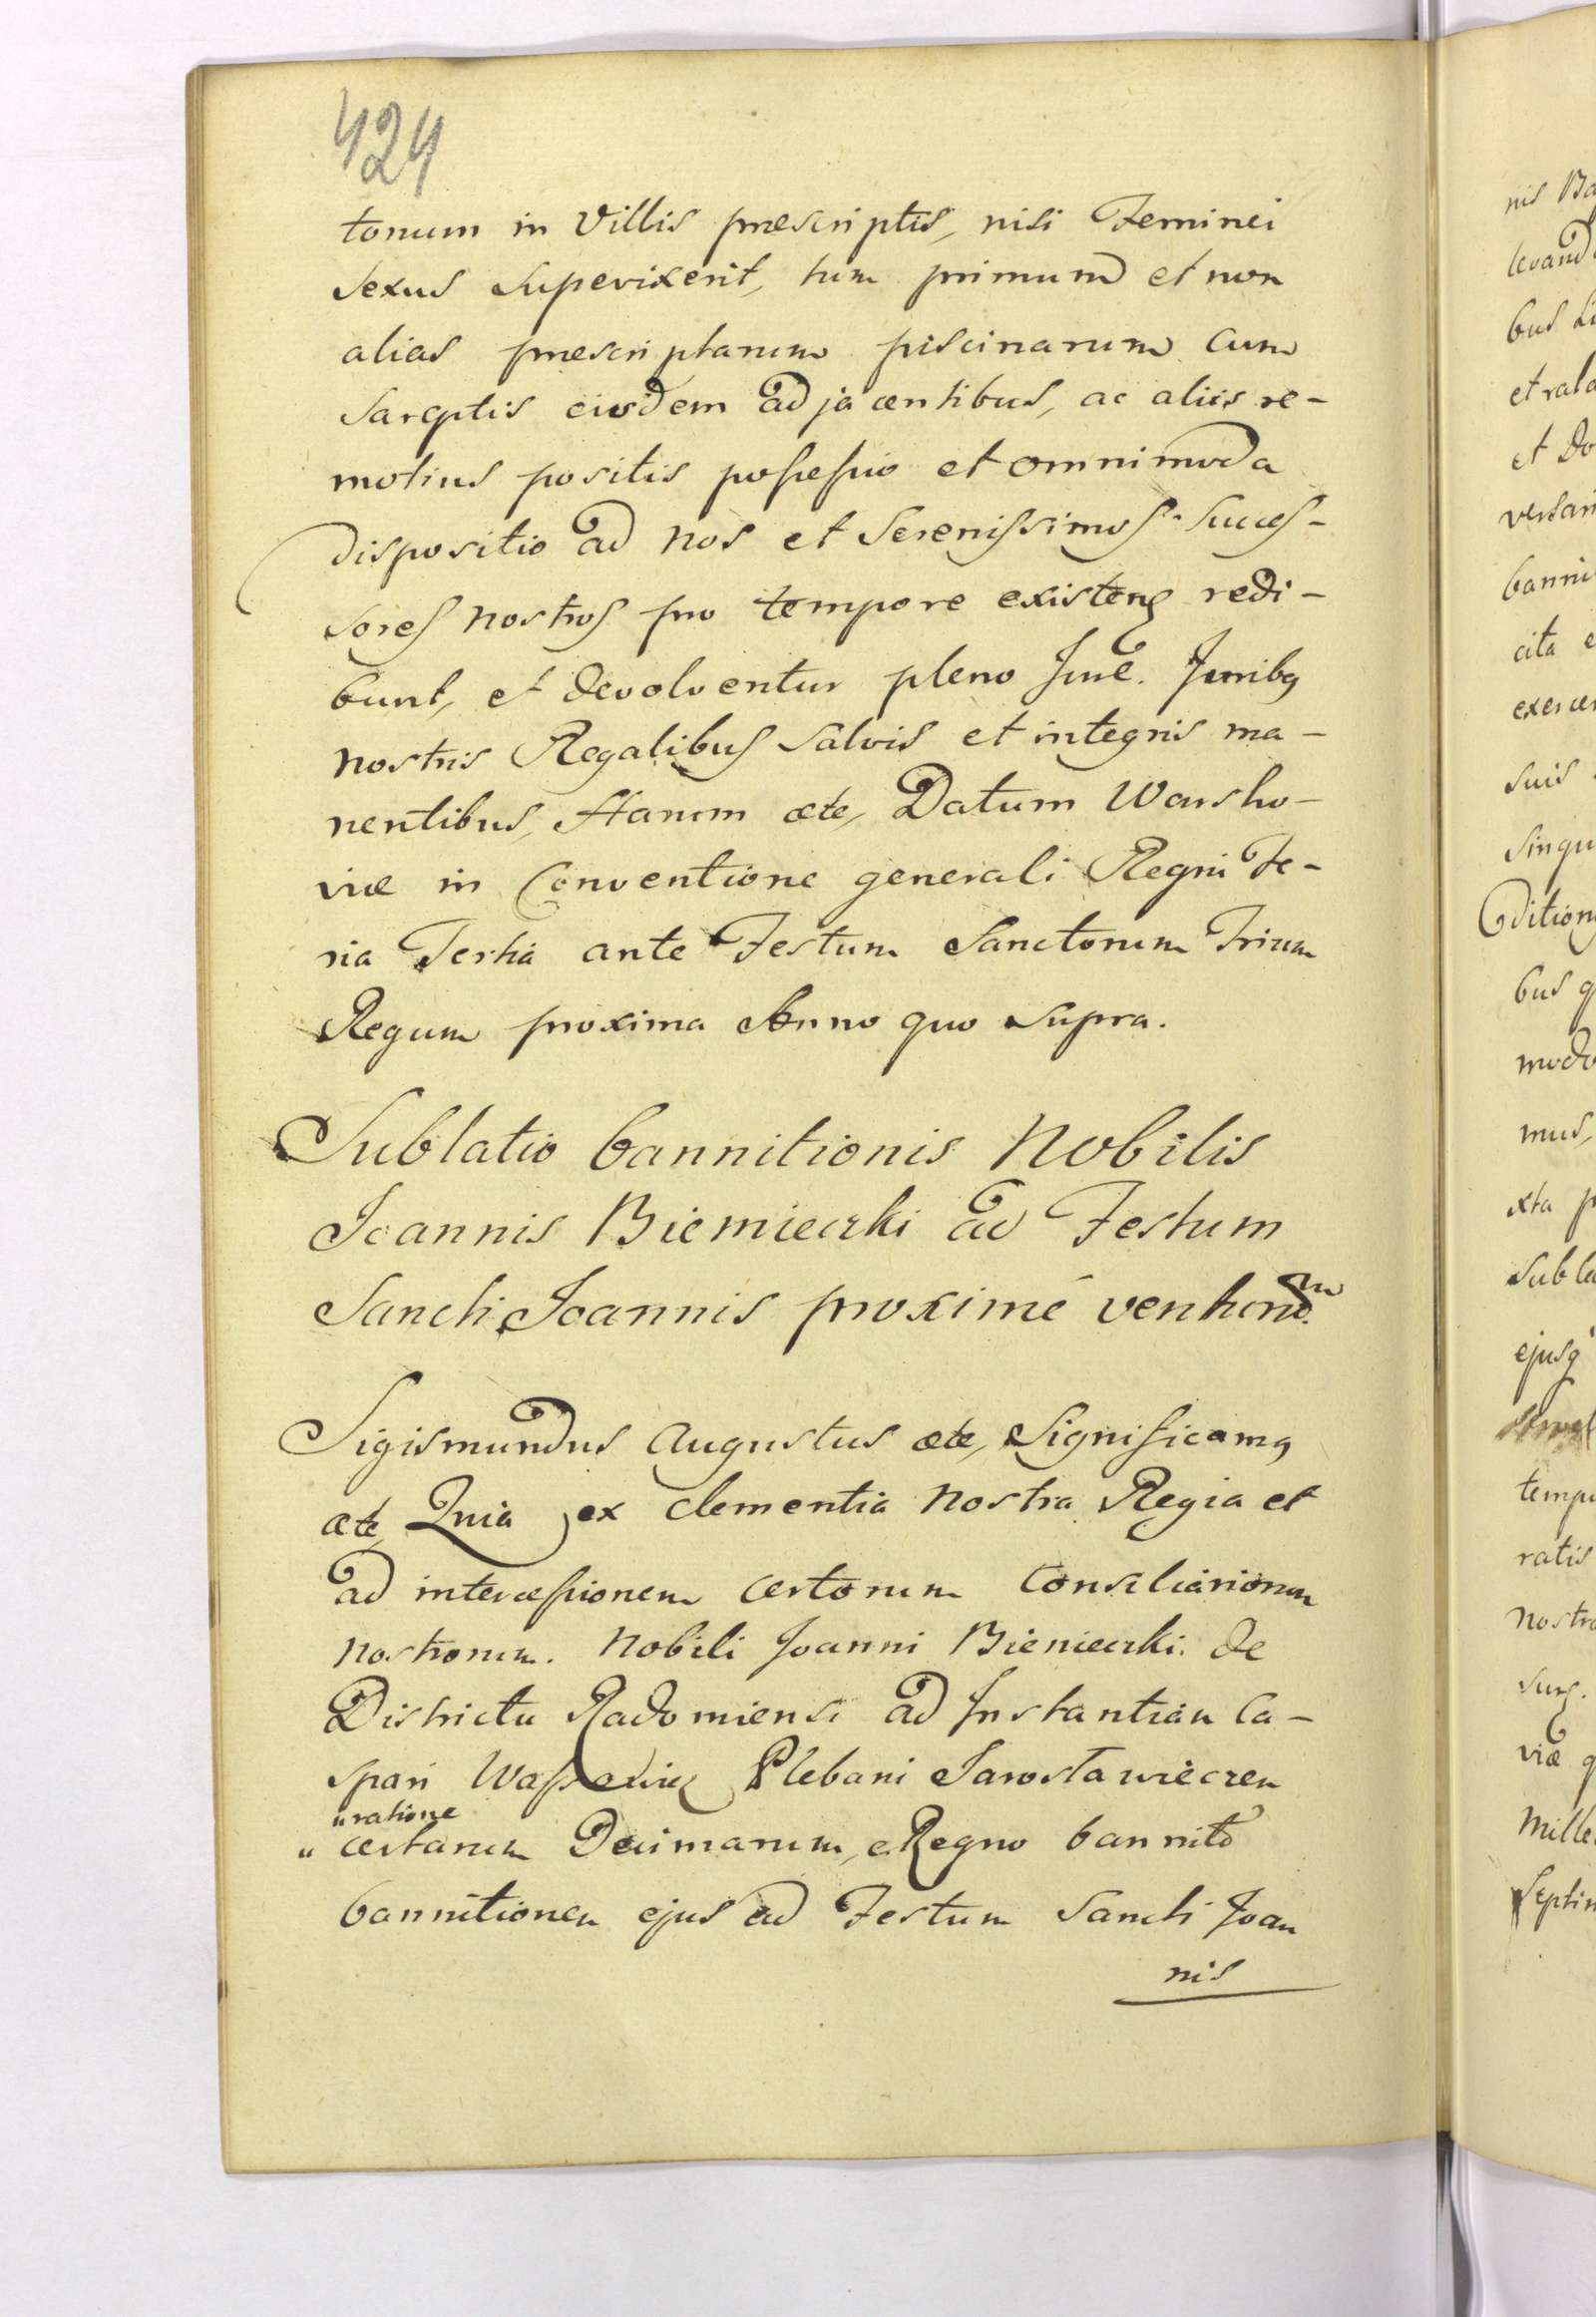 424
tonum in Villis præscriptis, nisi Feminei
Sexus Supervixerit, tum primum et non
alias præscriptarum piscinarum cum
Sareptis eisdem adjacentibus, ac aliis re-
motius positis possessio et omnimoda
dispositio ad nos et Serenissimos Succes-
sores nostros pro tempore existen redi-
bunt, et devolventur pleno Jure. Juribq
nostris Regalibus Salvis et integris ma-
nentibus, Harum ete, Datum Warsho-
viæ in Conventione generali Regni Fe-
ria Tertia ante Festum Sanctorum Trium
Regum proxima Anno quo Supra.
Sublatio bannitionis Nobilis
Joannis Biemiecrki ad Festum
Sancti Joannis proximé
Sigismundus Augustus ete, Significamq
ete, Quia ex clementia Nostra Regia et
ad intercessionem certorum Consiliariorum
nostrorum. Nobili Joanni Bieniecrki. de
Districtu Radomiensi ad Instantiam Ca-
spari Plebani Jaroslawiecren
" ratione
" certarum Decimarum, e Regno bannito
bannitionem ejus ad Festum Sancti Joan
nis
nis Ba
levand
bus
et rata
et do
versari
banni
cita e
exercen
suis
Singu
dition
bus q
modo
mus,
xta p
Subla
ejusq
tempo
ratis
nostra
viæ q
Mille
Septim